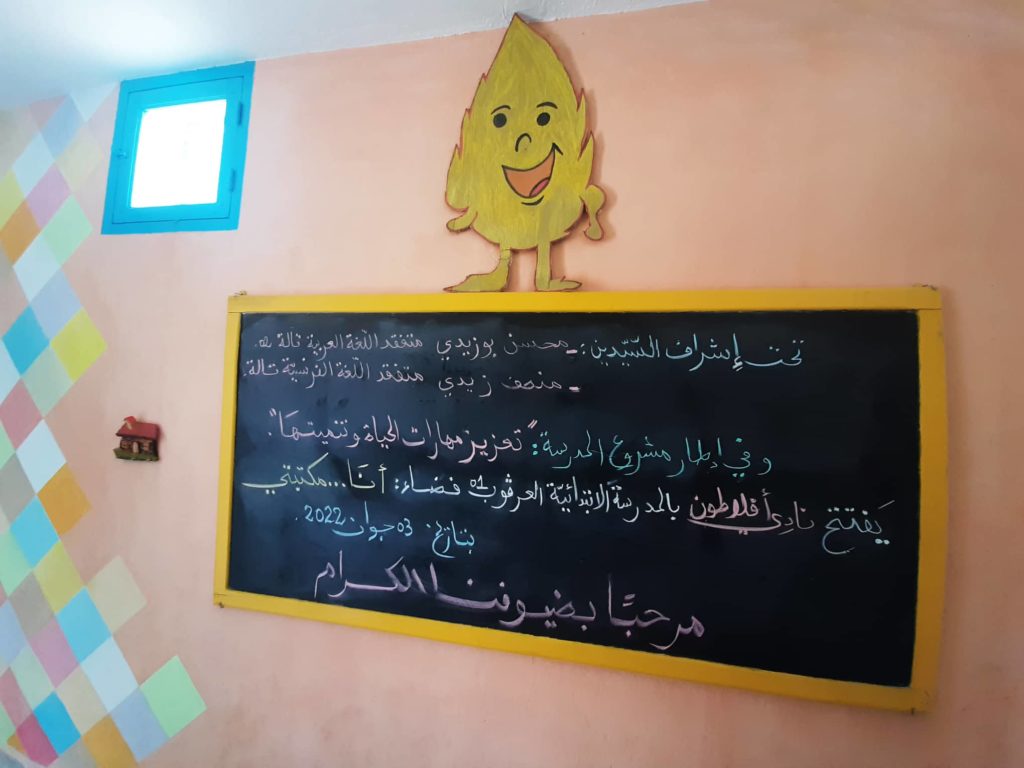 تحت إشراف السّيّدين: - محسن بوزيدي متفقد اللّغة العربية تالة
- منصف زيدي متفقد اللّغة الفرنسيّة تالة.
وفي إطار مشروع المدرسة: "تعزيز مهارات الحياة وتنميتها".
يَفتتح نادي أفلاطون بالمدرسة الابتدائيّة العرقوب 01 فضاء: أنَا... مكتبتي
بتاريخ 03 جوان 2022.
مرحبًا بضيوفنا الكرام